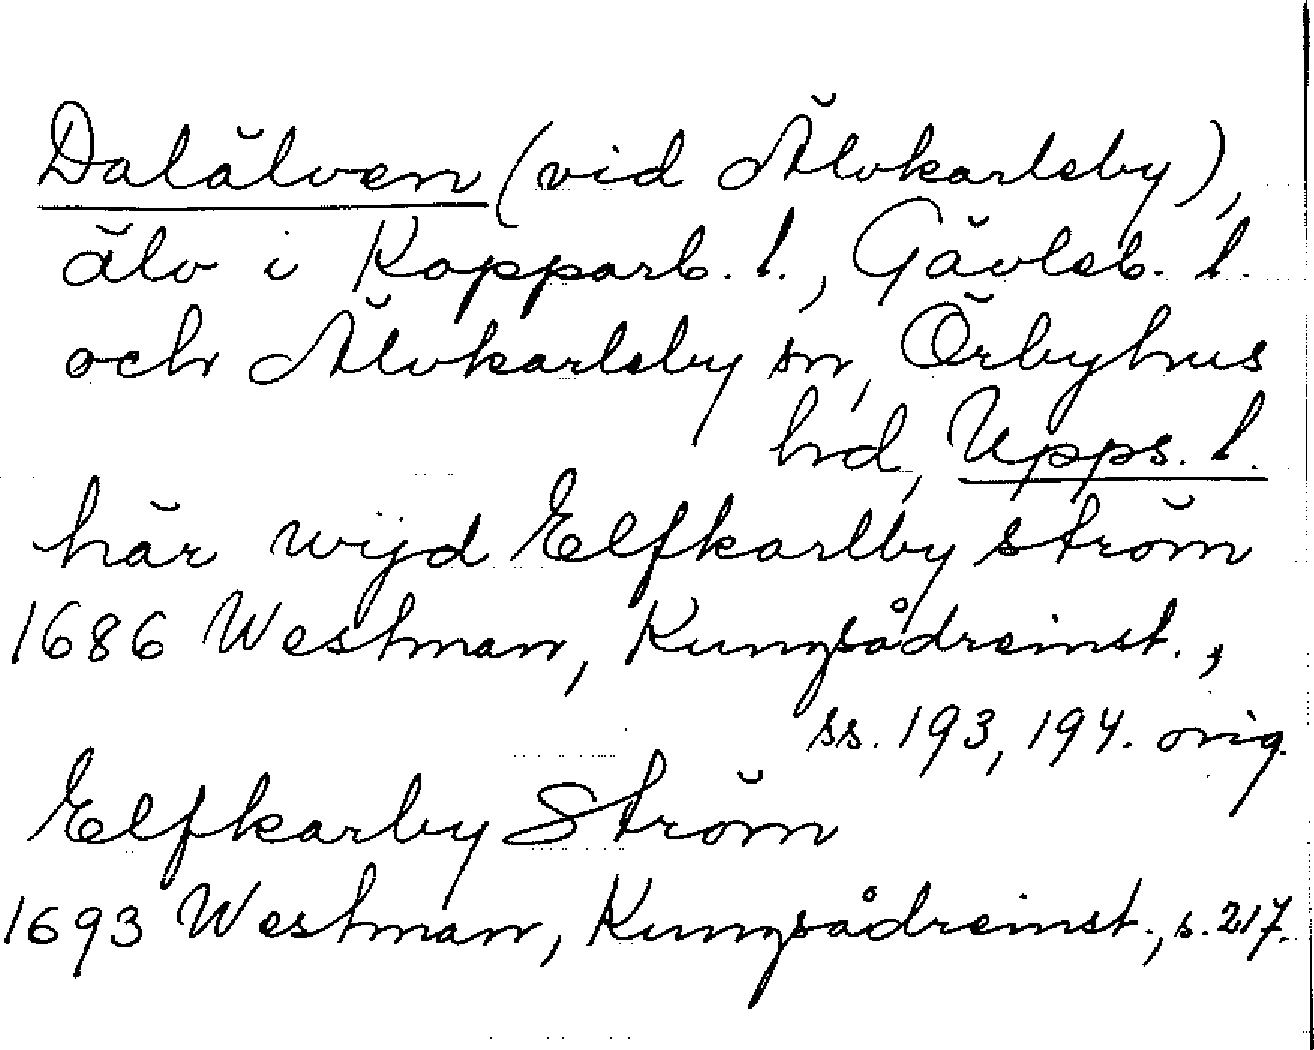 Dalälven (vid Älvkarleby),
älv i Kopparb. l., Gävleb. l.
och Älvkarleby sn, Örbyhus
hd, Upps. l.
här wijd Elfkarlby ström
1686 Westman, Kungsådreinst.,
ss. 193, 194. orig.
Elfkarby Ström
1693 Westman, Kungsådreinst., s. 217.